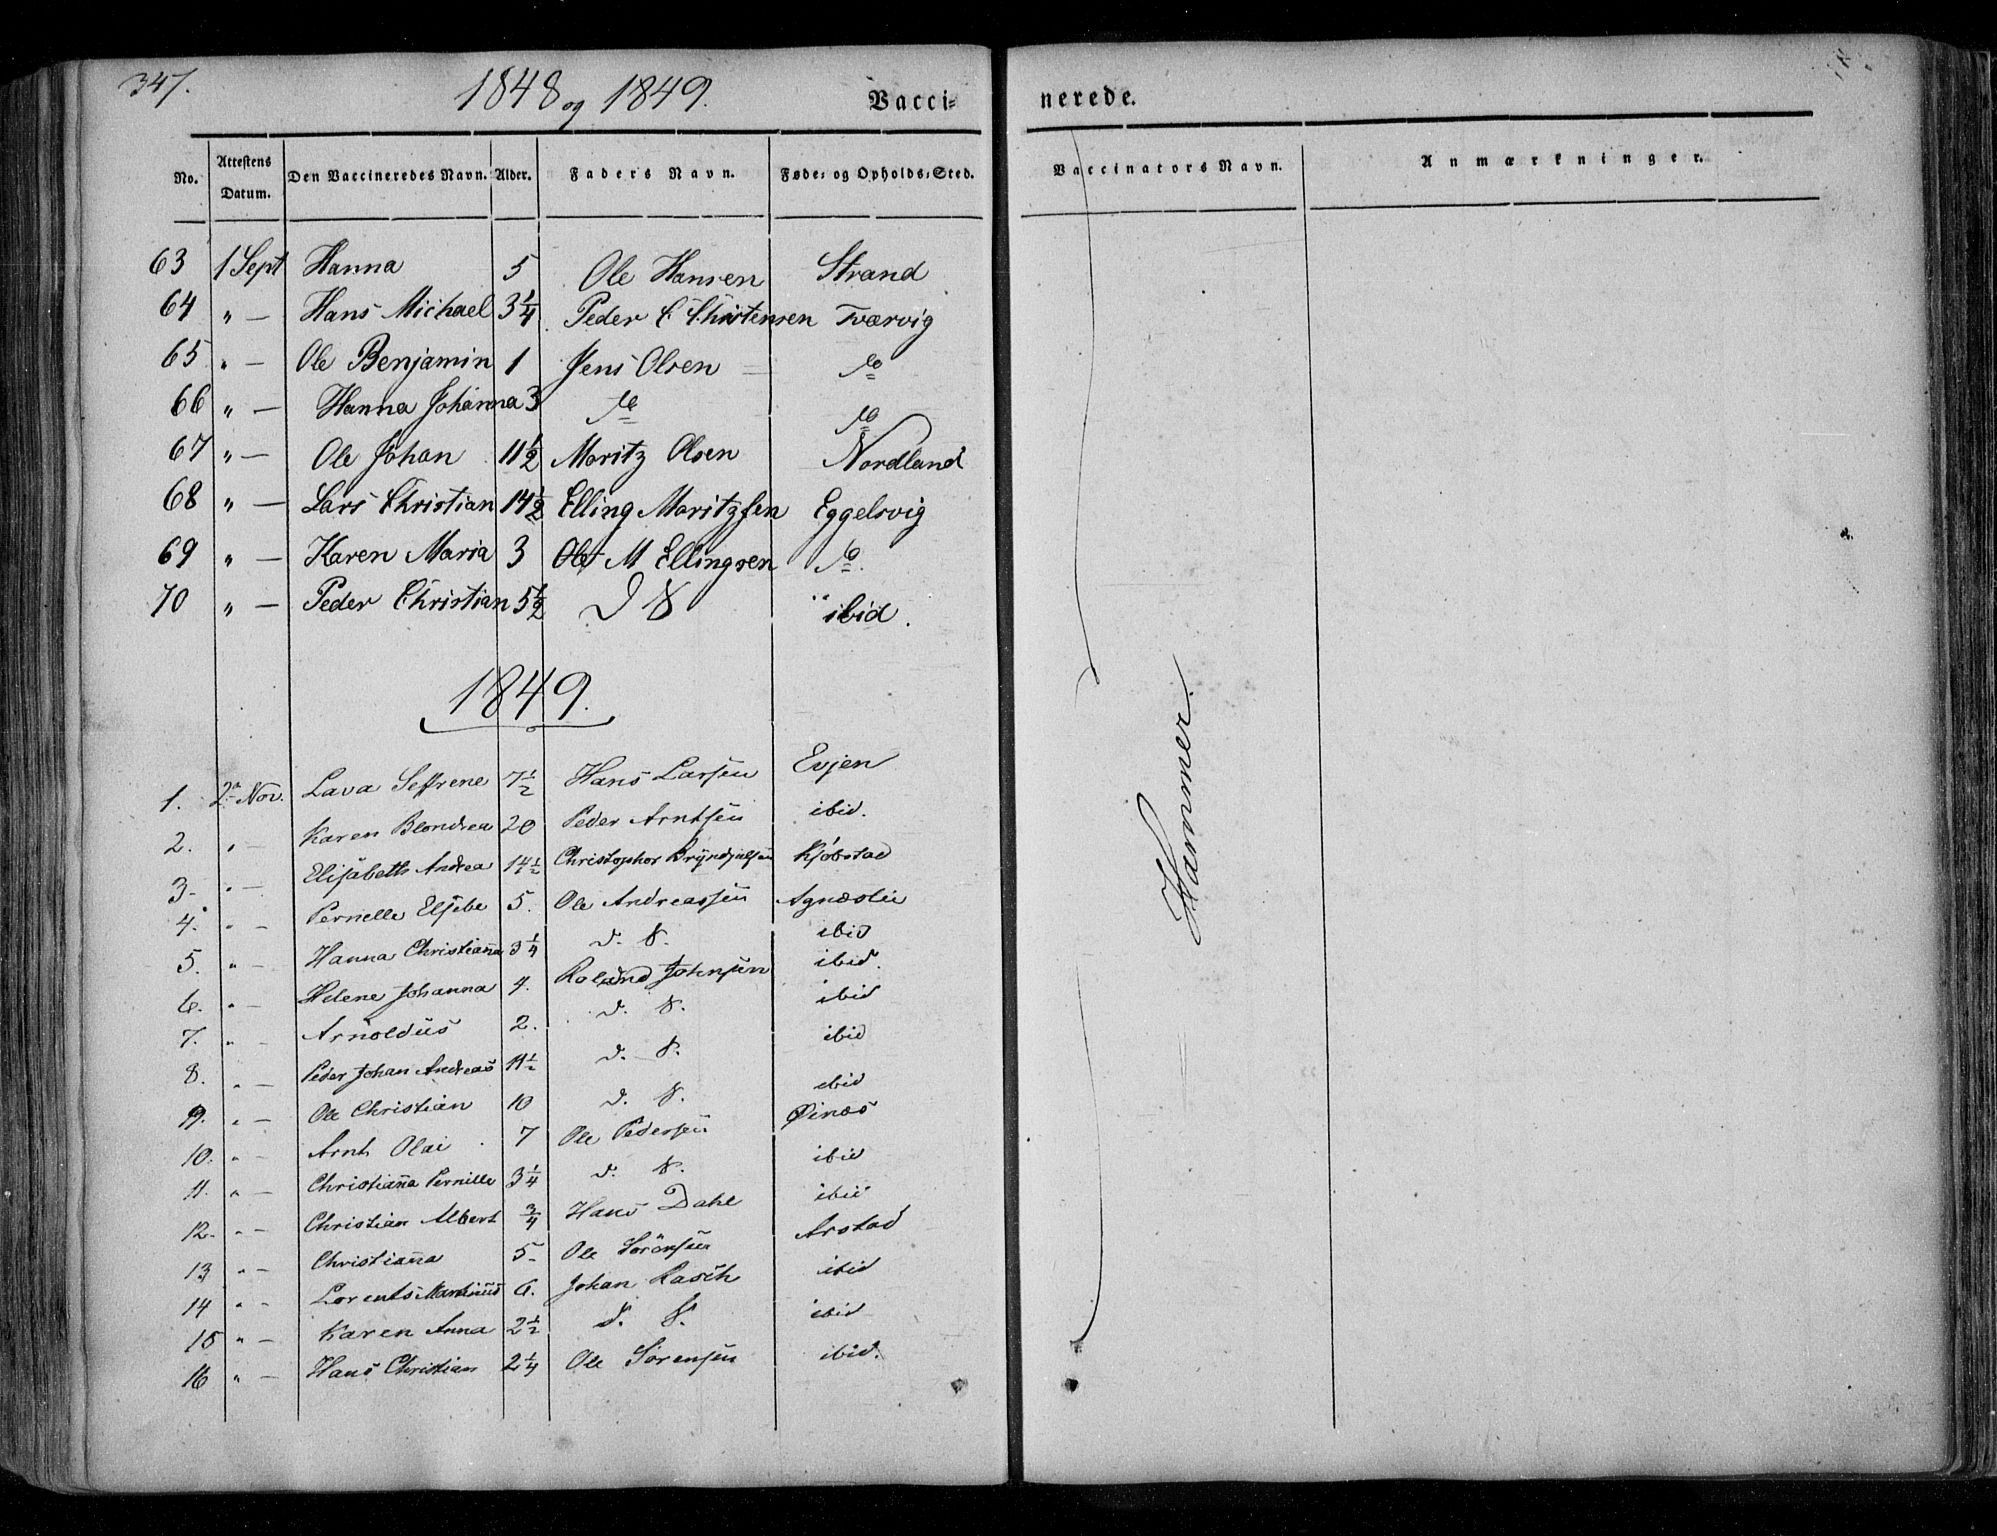 347.
1848 og 1849.
Vacci-
nerede.
No. Attestens Datum. Den Vaccineredes Navn. Alder. Faders Navn. Føde- og Opholds-Sted. Vaccinators Navn. Anmærkninger.
63 1 Sept Hanna 5 Ole Hansen Strand
64 " — Hans Michael 3 1/4 Peder C Christensen Tværvig
65 " — Ole Benjamin 1 Jens Olsen
66 " — Hanna Johanna 3
67 " — Ole Johan 11 1/2 Moritz Olsen Nordland
68 " — Lars Christian 14 1/2 Elling Moritzsen Eggelsvig
69 " — Karen Maria 3 Ole M Ellingsen
70 " — Peder Christian 5 1/2 D S ibid.
1849.
1. 2 Nov. Lava Seffrene 7 1/2 Hans Larsen Evjen
2. " — Karen Blondrea 20 Peder Arntsen ibid.
3- " — Elisabeth Andrea 14 1/2 Christopher Kjøbstad
4. " — Pernelle Elsebe 5. Ole Andreassen Agnæslie
5. " — Hanna Christianna 3 1/4 d. S. ibid
6. " — Helene Johanna 4. Roland Johnsen ibid.
7. " — Arnoldus 2. d. S. ibid
8. " — Peder Johan Andreas 11 1/2 d. S. ibid
9. " — Ole Christian 10 d. S. ibid
10. " — Arnt Olai 7 Ole Pedersen Øinæs
11. " — Christianna Pernille 3 1/4 d. S. ibid
12. " — Christian Albert 3/4 Hans Dahl ibid
13 " — Christianna 5- Ole Sörensen Arstad
14 " — Lorents Martinus 6. Johan Rasch ibid
15 " — Karen Anna 2 1/2 d. S. ibid
16 " — Hans Christian 2 1/4 Ole Sörensen ibid.
Hammer.